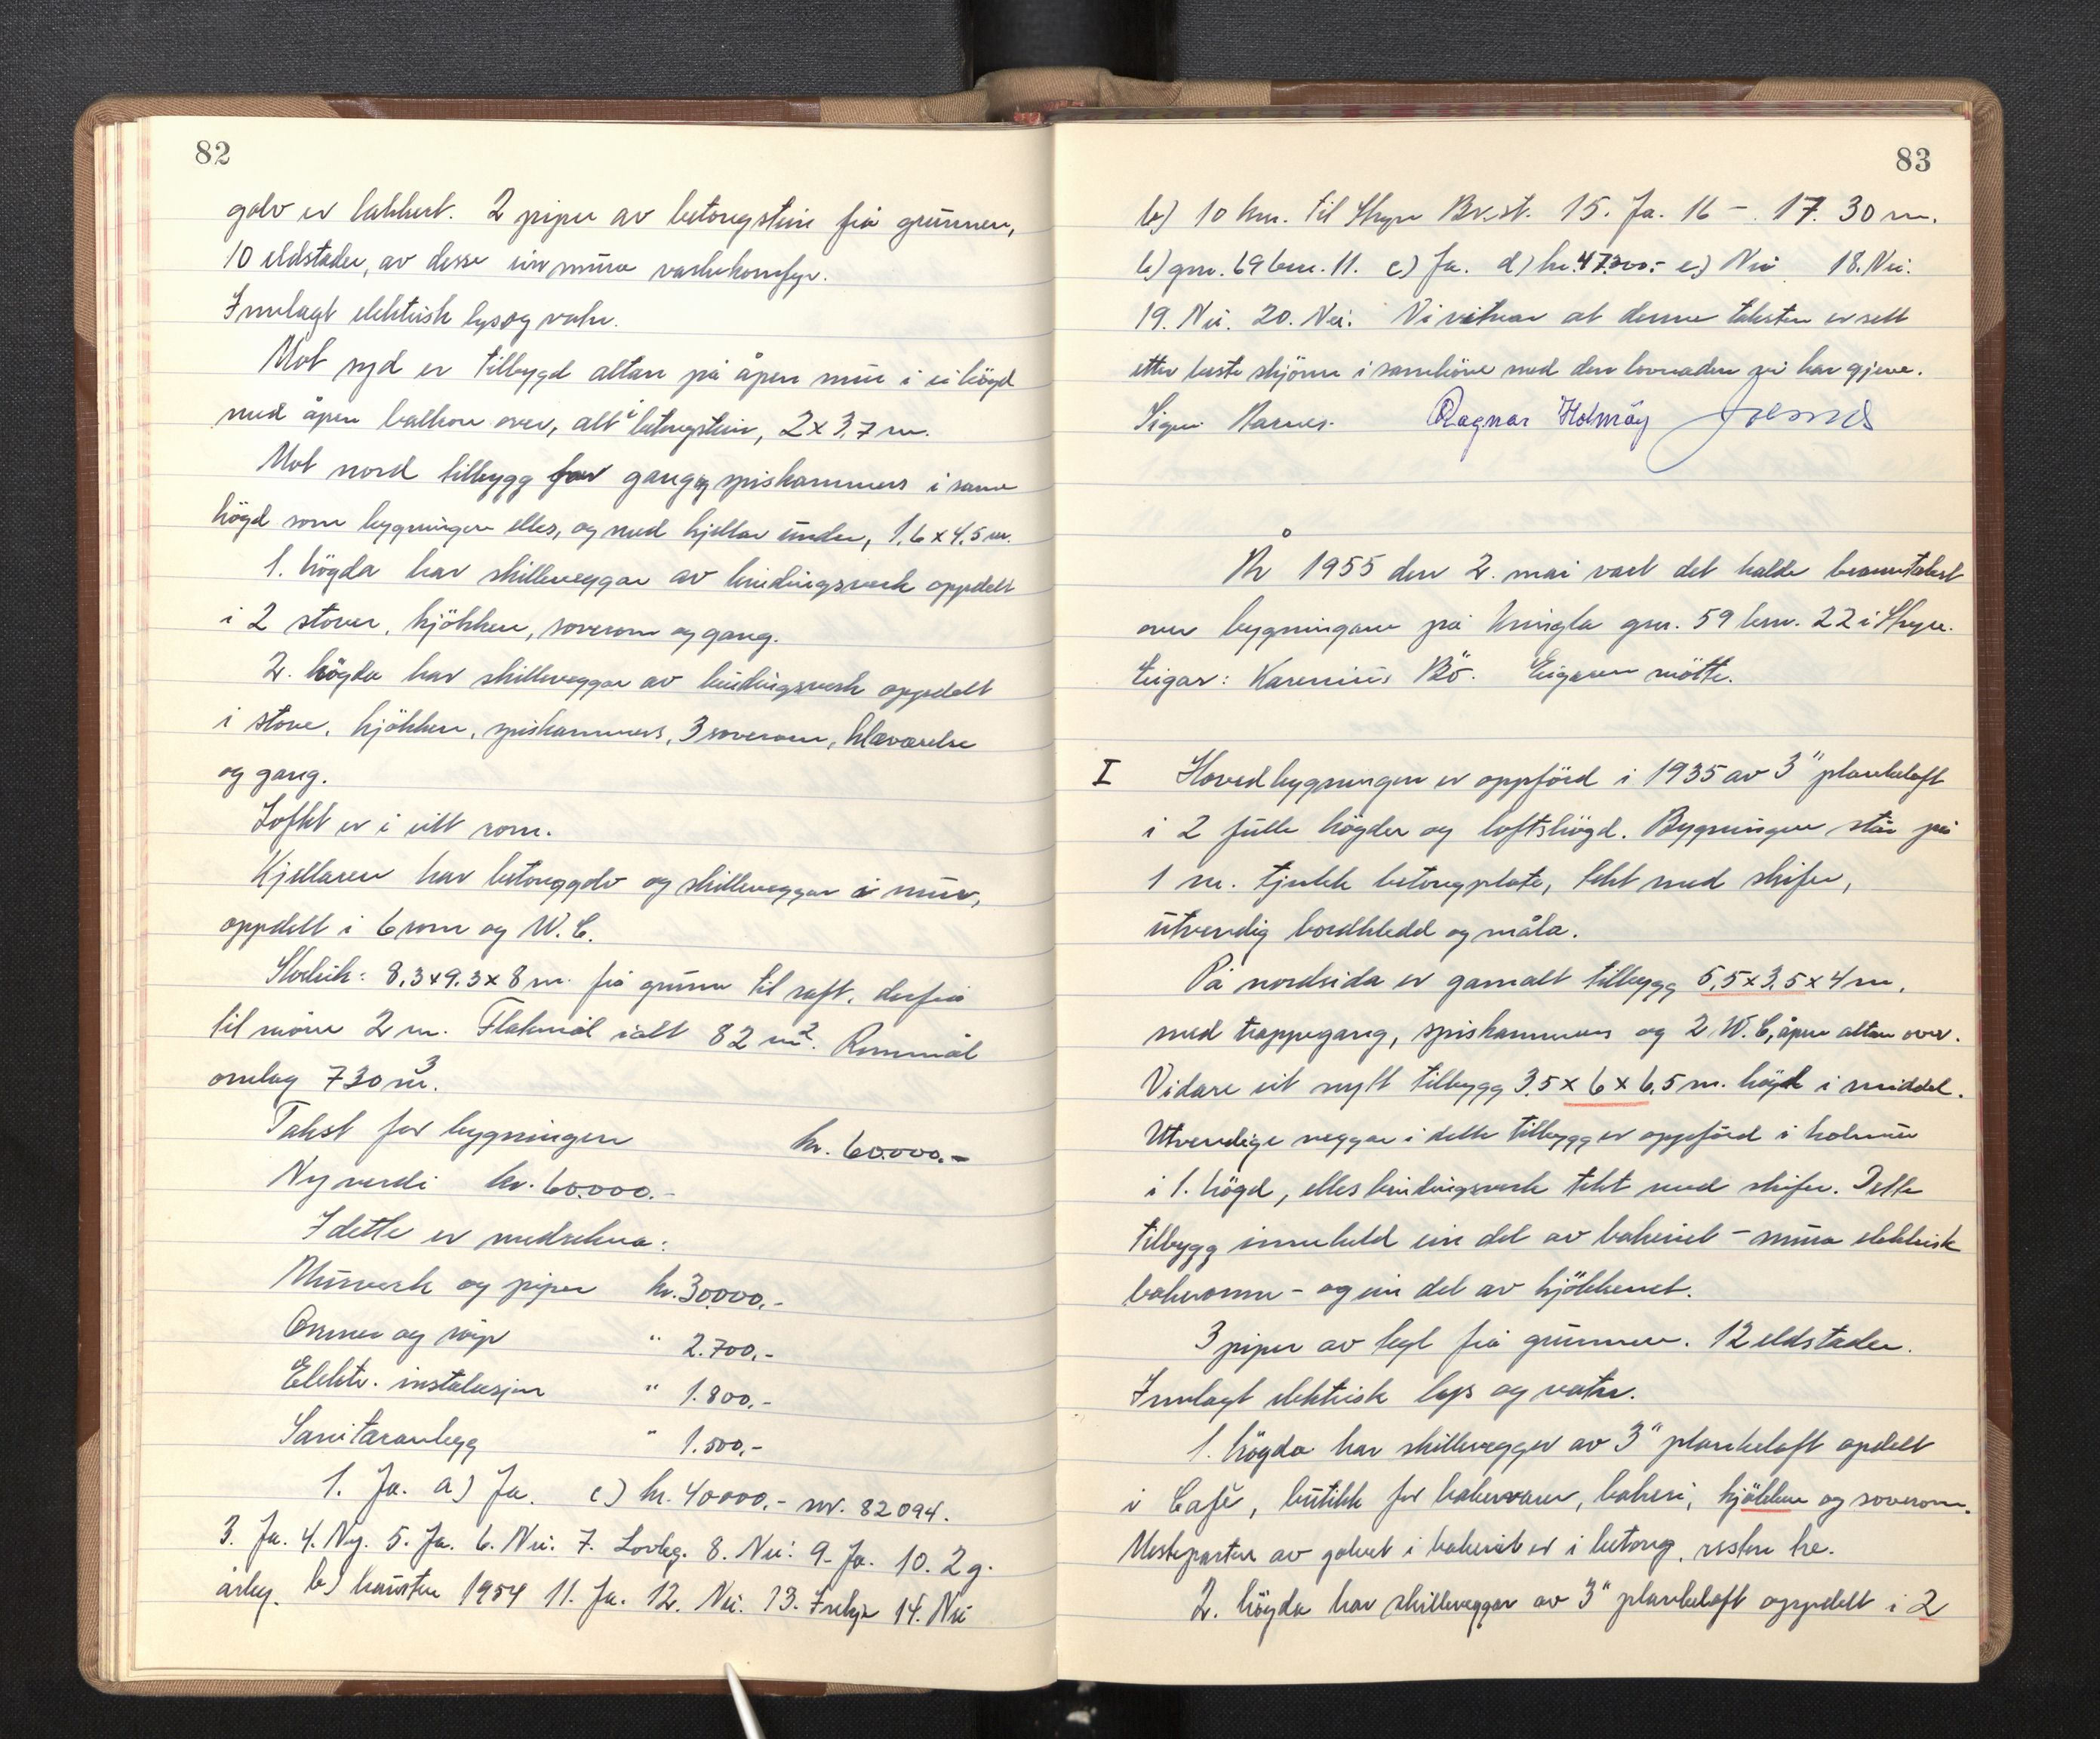 82
golv er lakkert. 2 piper av betongstein frå grunnen,
10 eldstader, av desse ein mura vaskekomfyr.
Innlagt elektrisk lys og vatn.
Mot syd er tilbygd altan på åpen mur i ei högd
med åpen balkon over, alt i betongstein, 2 x 3,7 m.
Mot nord tilbygg for gang og spiskammers i same
högd som bygningen elles, og med kjellar under, 1,6 x 4,5 m.
1. högda har skilleveggar av bindingsverk oppdelt
i 2 stover, kjökken, soverom og gang.
2. högda har skilleveggar av bindingsverk oppdelt
i stove, kjökken, spiskammers, 3 soverom, klæværelse
og gang.
Loftet er i eitt rom.
Kjellaren har betonggolv og skilleveggar i mur,
oppdelt i 6 rom og W.C.
Storleik: 8,3 x 9,3 x 8 m. frå grunn til raft, derfrå
til möne 2 m. Flatemål ialt 82 m². Rommål
omlag 730 m³.
Takst for bygningen kr. 60.000.-
Ny verdi kr. 60.000.-
I dette er medrekna:
Murverk og piper kr. 30.000,-
Omner og rör " 2.700,-
Elektr. instalasjon " 1.800,-
Sanitæranlegg " 1.500,-
1. Ja. a) Ja. c) kr. 40000,- nr. 82094.
3. Ja. 4. Ny. 5. Ja. 6. Nei. 7. Lovleg. 8. Nei. 9. Ja. 10. 2 g.
årleg. b) hausten 1954 11. Ja. 12. Nei. 13. Ikkje 14. Nei
83
b) 10 km. til Stryn Br.st. 15. Ja. 16 -. 17. 30 m.
b) gnr. 69 bnr. 11. c) Ja. d) kr. 47.200:- e) Nei 18. Nei.
19. Nei. 20. Nei. Vi vitnar at denne taksten er sett
etter beste skjönn i samhöve med den lovnaden vi har gjeve.
Sigur Ragnar Holmöy
År 1955 den 2. mai vart det halde branntakst
over bygningane på Kringla gnr. 59 bnr. 22 i Stryn.
Eigar: Karenius Bö. Eigaren mötte.
I Hovedbygningen er oppförd i 1935 av 3" plankelaft
i 2 fulle högder og loftshögd. Bygningen står på
1 m. tjukk betongplate, tekt med skifer,
utvendig bordkledd og måla.
På nordsida er gamalt tilbygg 5,5 x 3,5 x 4 m,
med trappegang, spiskammers og 2 W.C, åpen altan over.
Vidare eit nytt tilbygg 3,5 x 6 x 6,5 m. högd i middel.
Utvendige veggar i dette tilbygg er oppförd i holmur
i 1. högd, elles bindingsverk tekt med skifer. Dette
tilbygg inneheld ein del av bakeriet - mura elektrisk
bakeromn - og ein del av kjökkenet.
3 piper av tegl frå grunnen. 12 eldstader.
Innlagt elektrisk lys og vatn.
1. högda har skillevegger av 3" plankelaft opdelt
i Café, butikk for bakervarer, bakeri, kjökken og soverom.
Mesteparten av golvet i bakeriet er i betong, resten tre.
2. högda har skilleveggar av 3" plankelaft oppdelt i 2